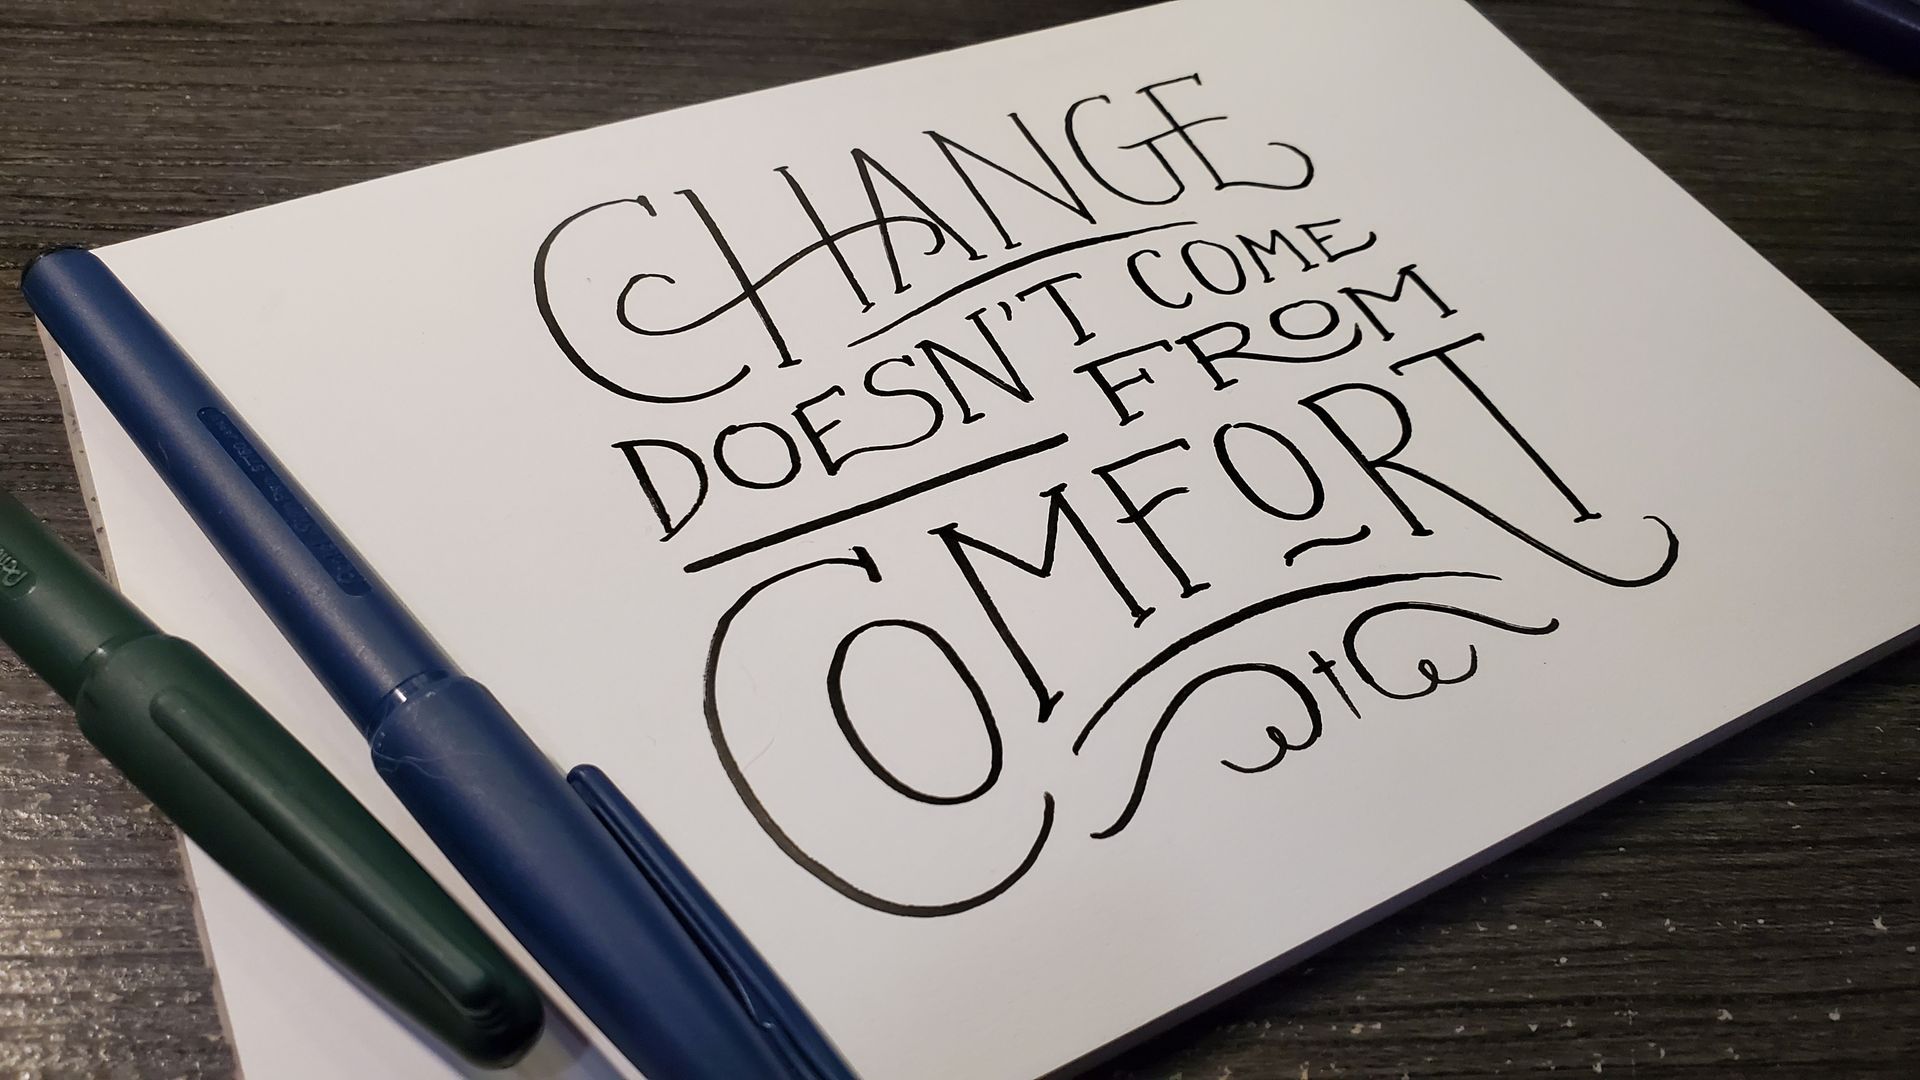 CHANGE
DOESN'T COME
FROM
COMFORT